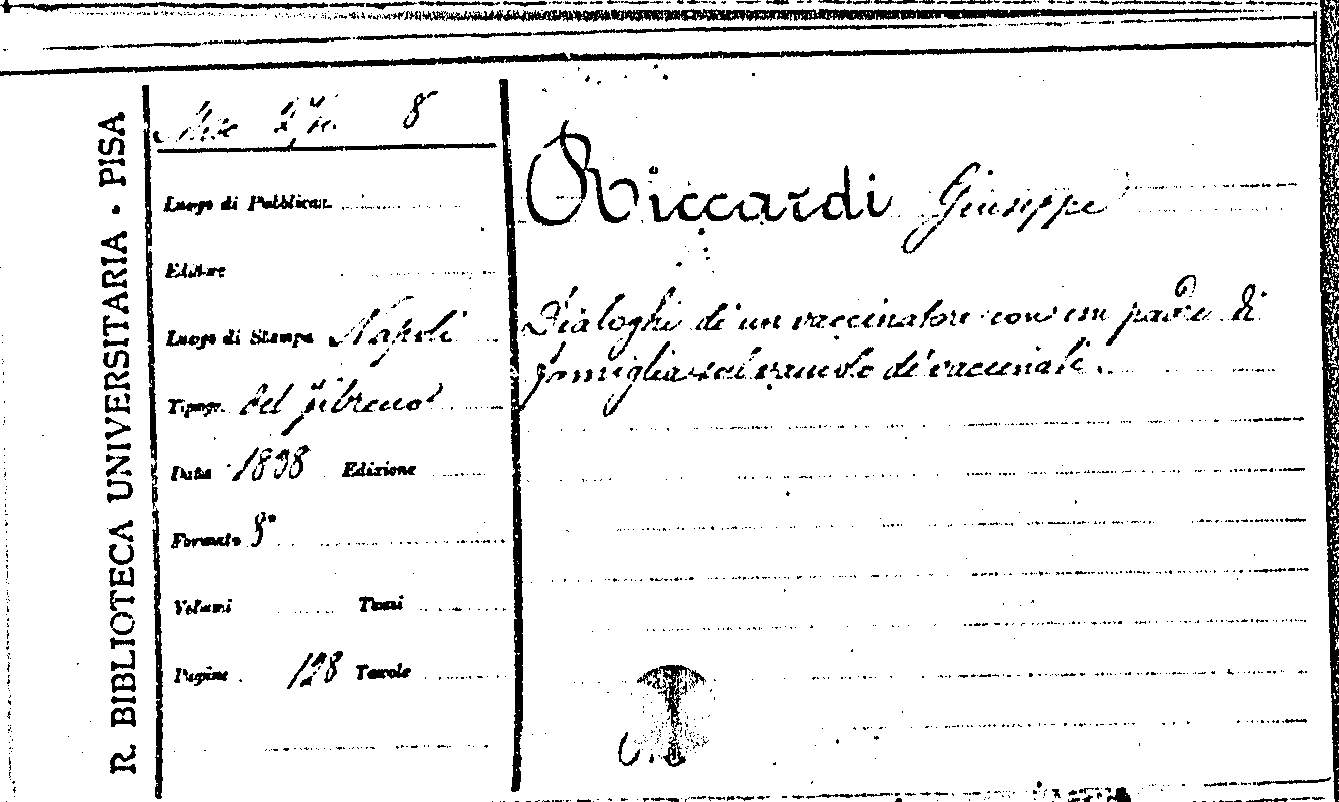 R. BIBLIOTECA UNIVERSITARIA - PISA
Misc. 8
Luogo di Pubblicaz.
Editore
Luogo di Stampa Napoli
Tipogr. del Fibreno
Data 1838 Edizione
Formato 8°
Volumi Tomi
Pagine 128 Tavole
Riccardi Giuseppe
Dialoghi di un vaccinatore con un padre di
famiglia sul vaiuolo di vaccinati.